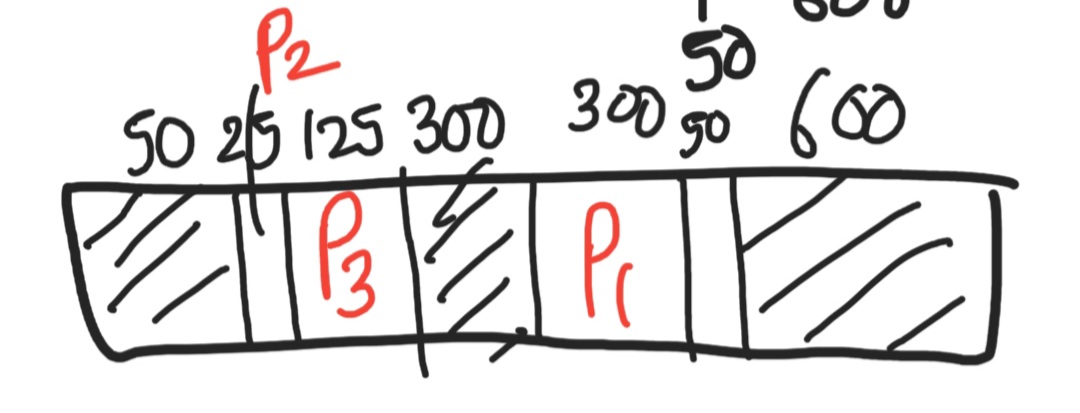 P2
50
50 25 125 300 300 50 600
P3 P1